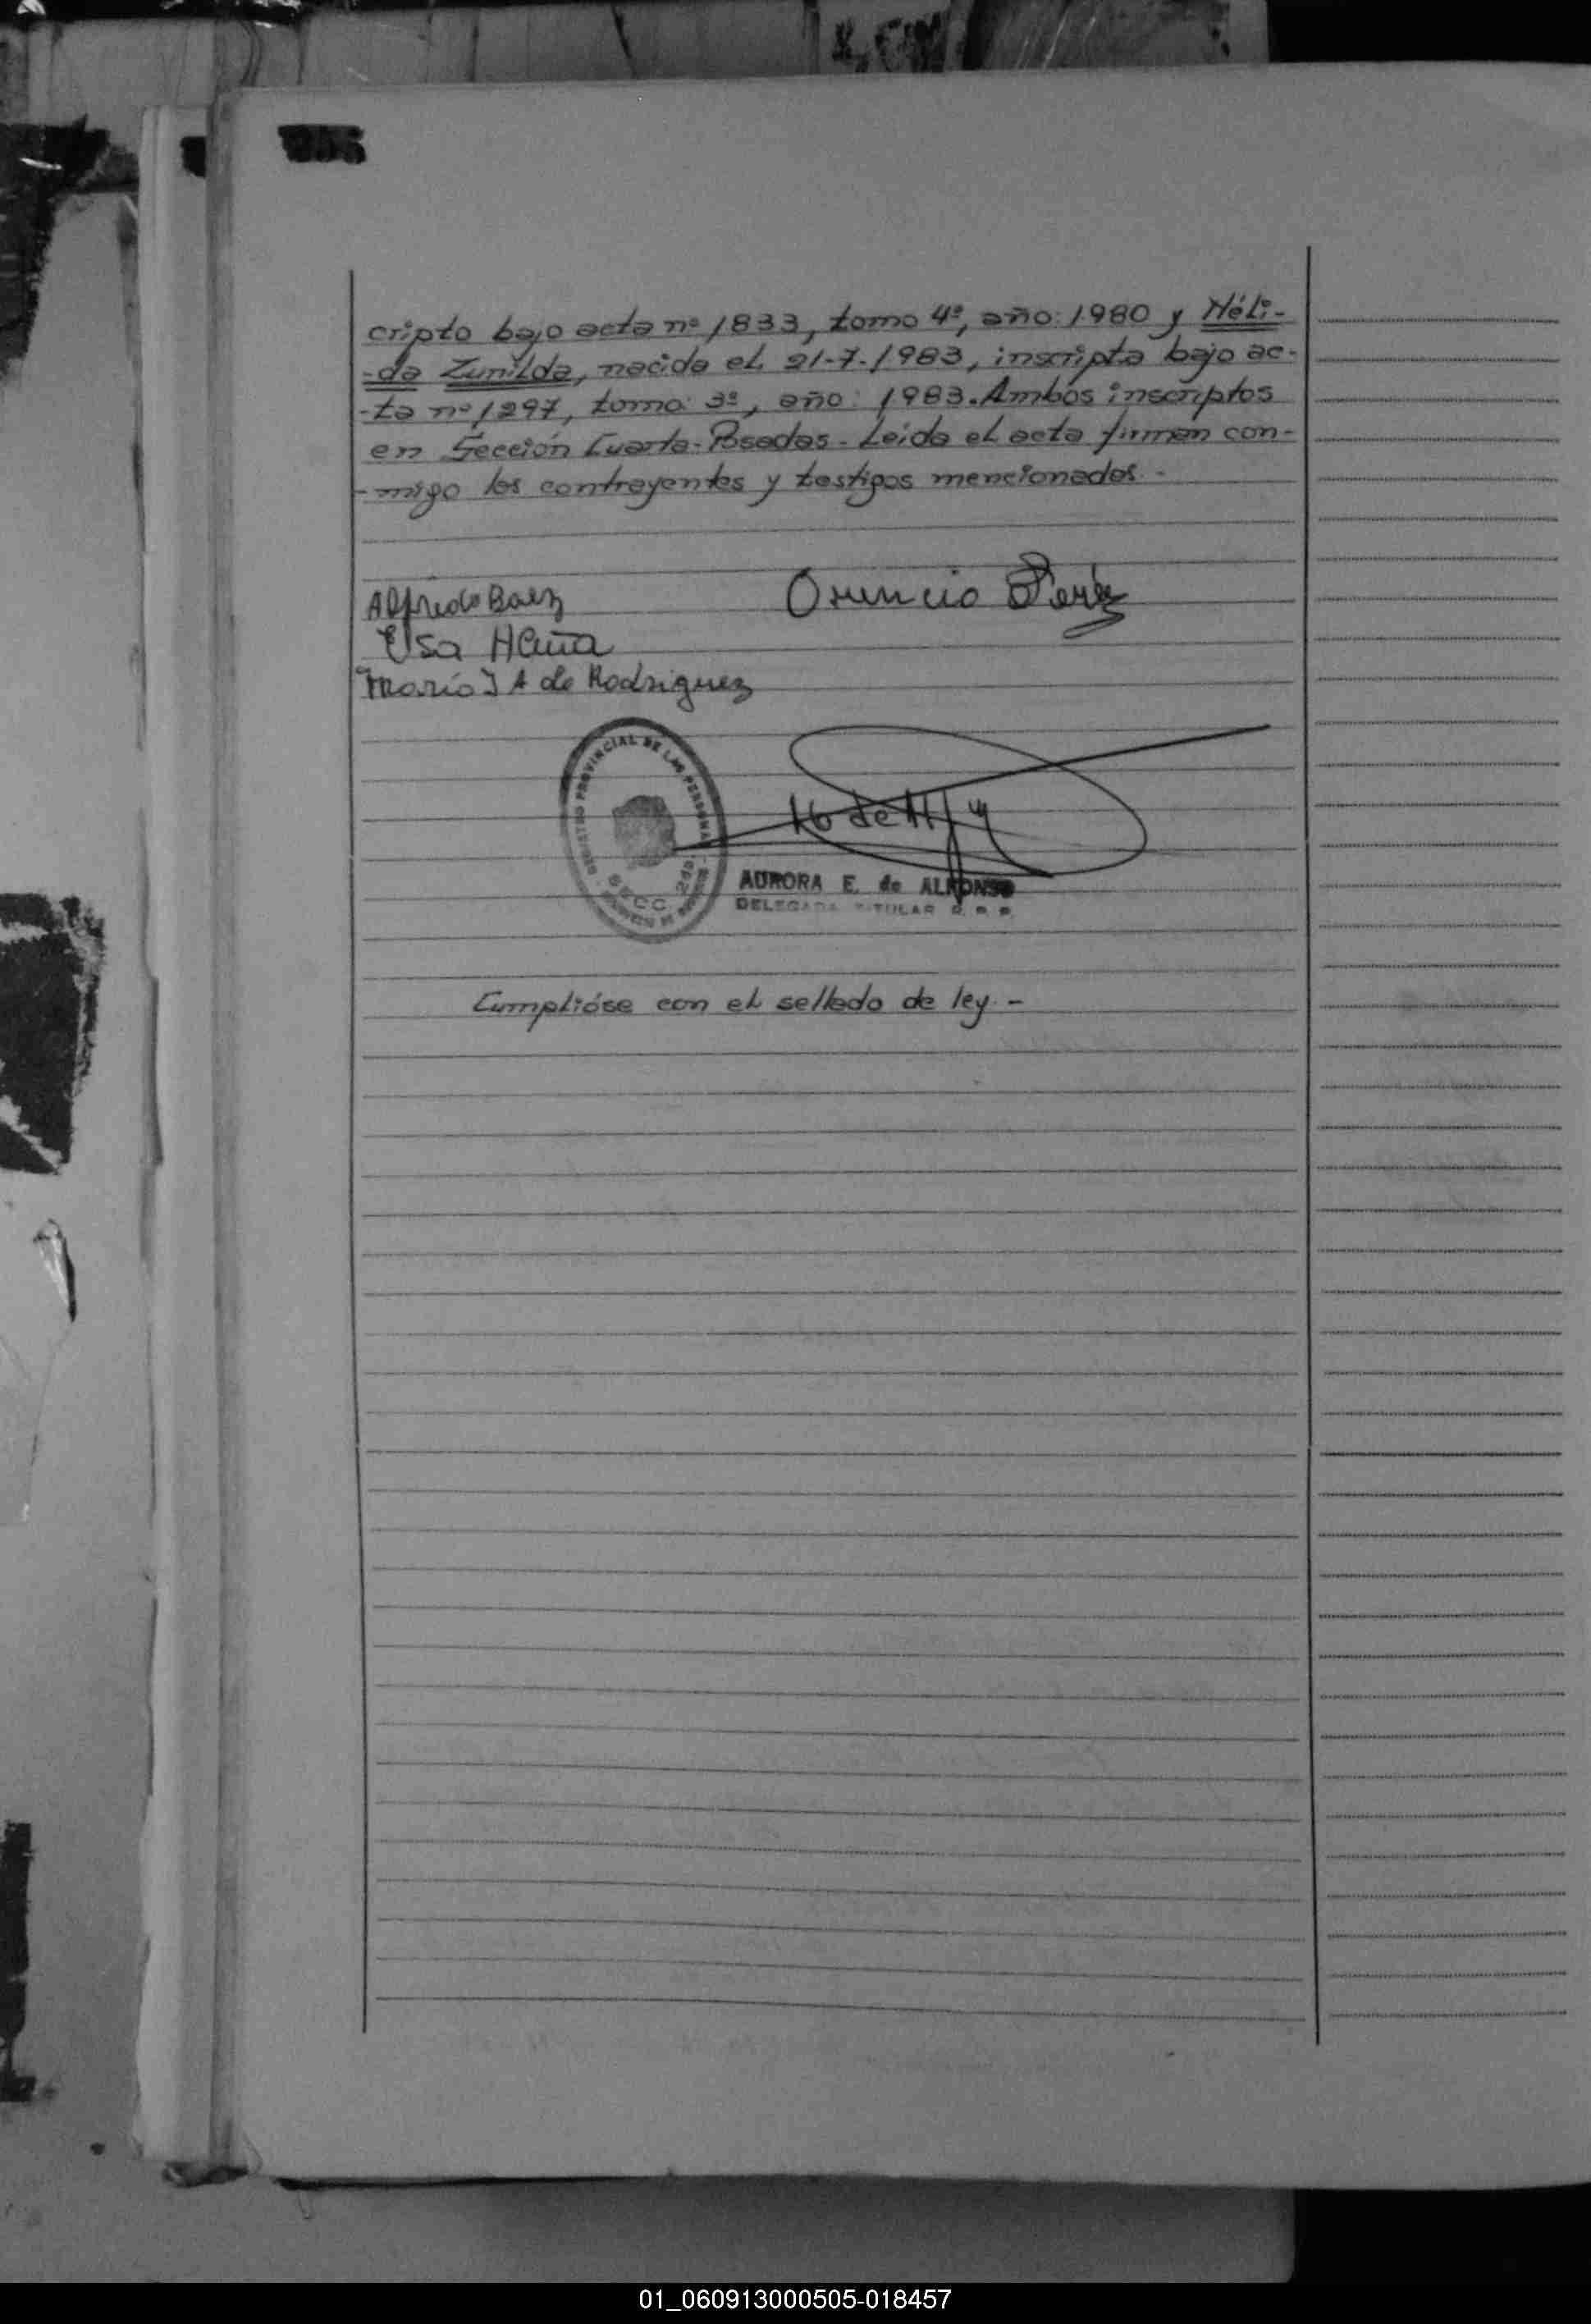 cripto bajo acta nº 1833, tomo 4º, año: 1980 y Néli-
-da Zunilda, nacida el 21-7-1983, inscripta bajo ac-
-ta nº 1297, tomo: 3º, año: 1983. Ambos inscriptos
en Sección Cuarta-Posadas - Leída el acta firman con-
-migo los contrayentes y testigos mencionados. -
Alfredo Baez
Oruncio Perez
Elsa Acuña
Maria J A de Rodriguez
REGISTRO PROVINCIAL DE LAS PERSONAS
SECC. 2da
AURORA E. de ALFONSO
DELEGADA TITULAR R. P. P.
Cumplióse con el sellado de ley. -
01_060913000505-018457